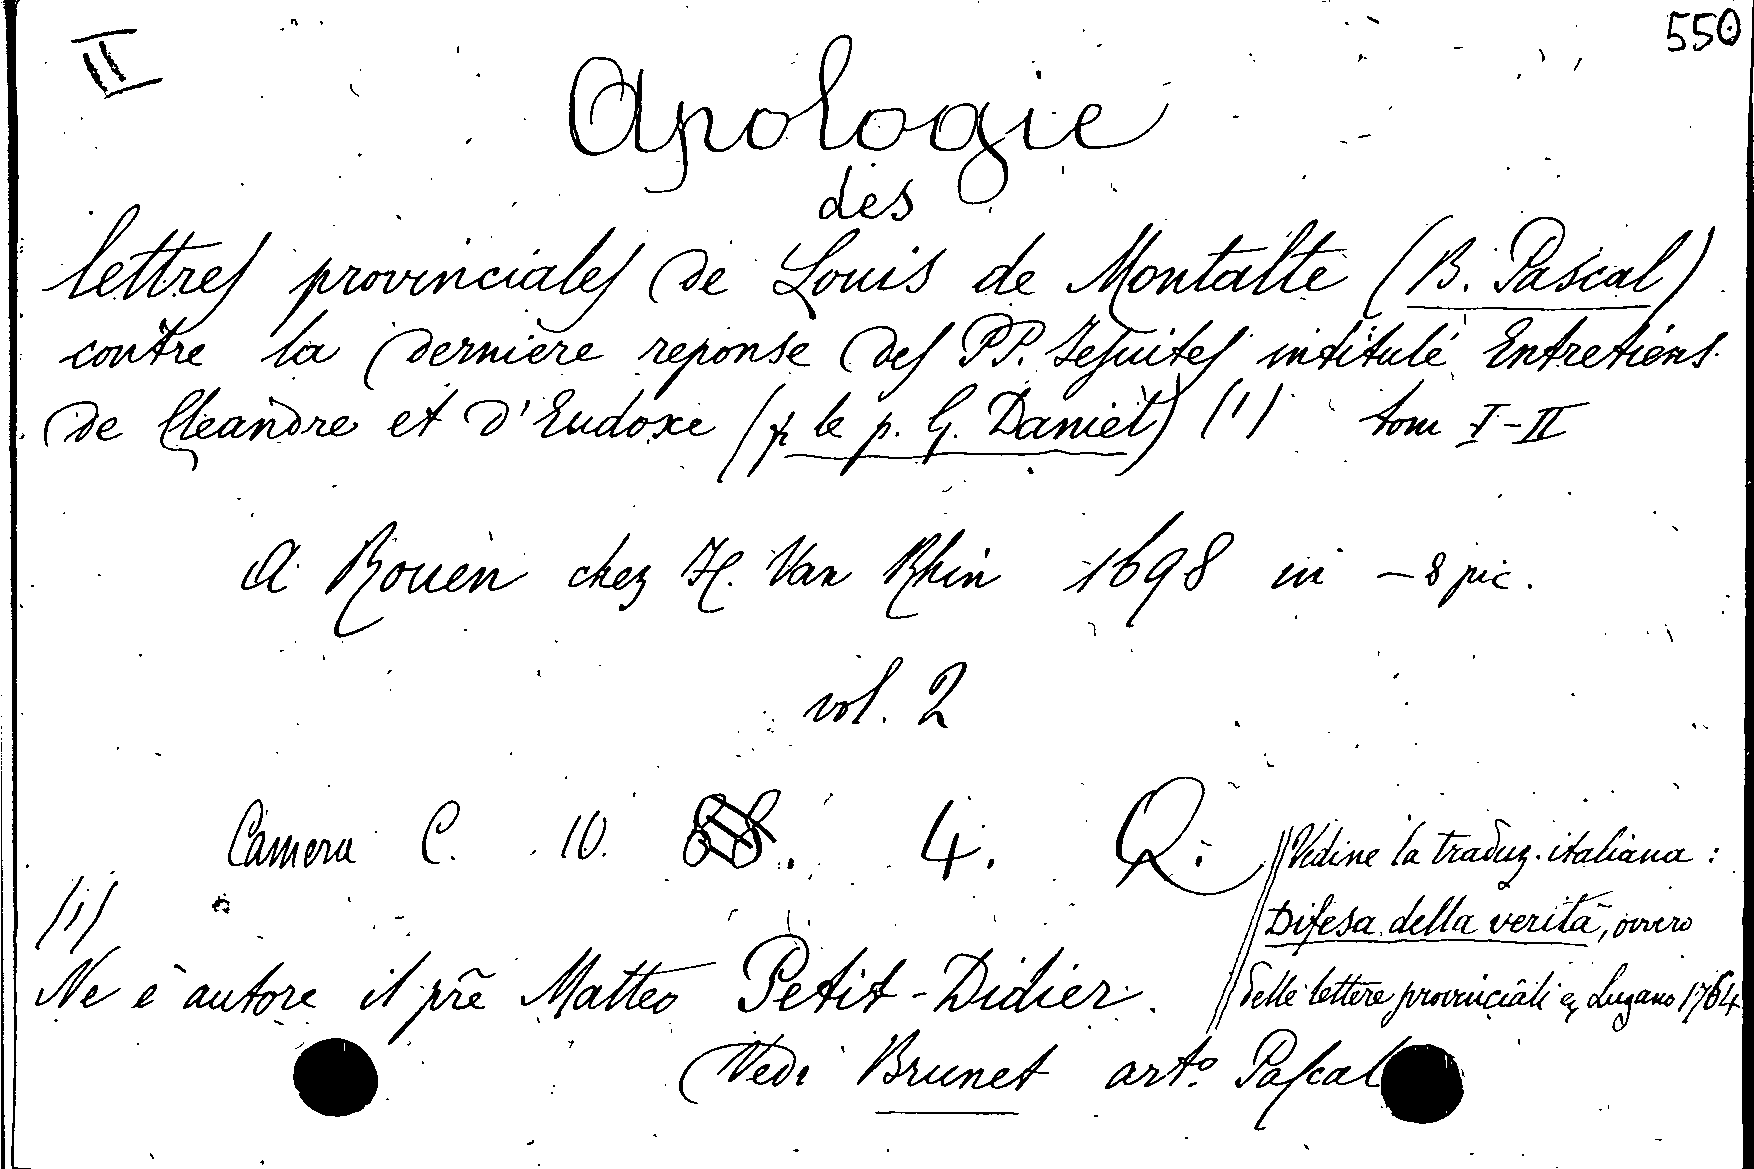 II
550
Apologie
des
lettres provinciales de Louis de Montalte (B. Pascal)
contre la dernière reponse des PP. Jesuites intitulé Entretiens
de Cleandre et d'Eudoxe (p. le p. G. Daniel) (1) tom I-II
A Rouen chez H. Van Rhin 1698 in-8 pic.
vol. 2
Camera C. 10. 4. Q.
Vedine la traduz. italiana:
Difesa della verità, ovvero
delle lettere provinciali Lugano 1764
(1)
Ne è autore il prē Matteo Petit-Didier.
Vedi Brunet arto. Pascal